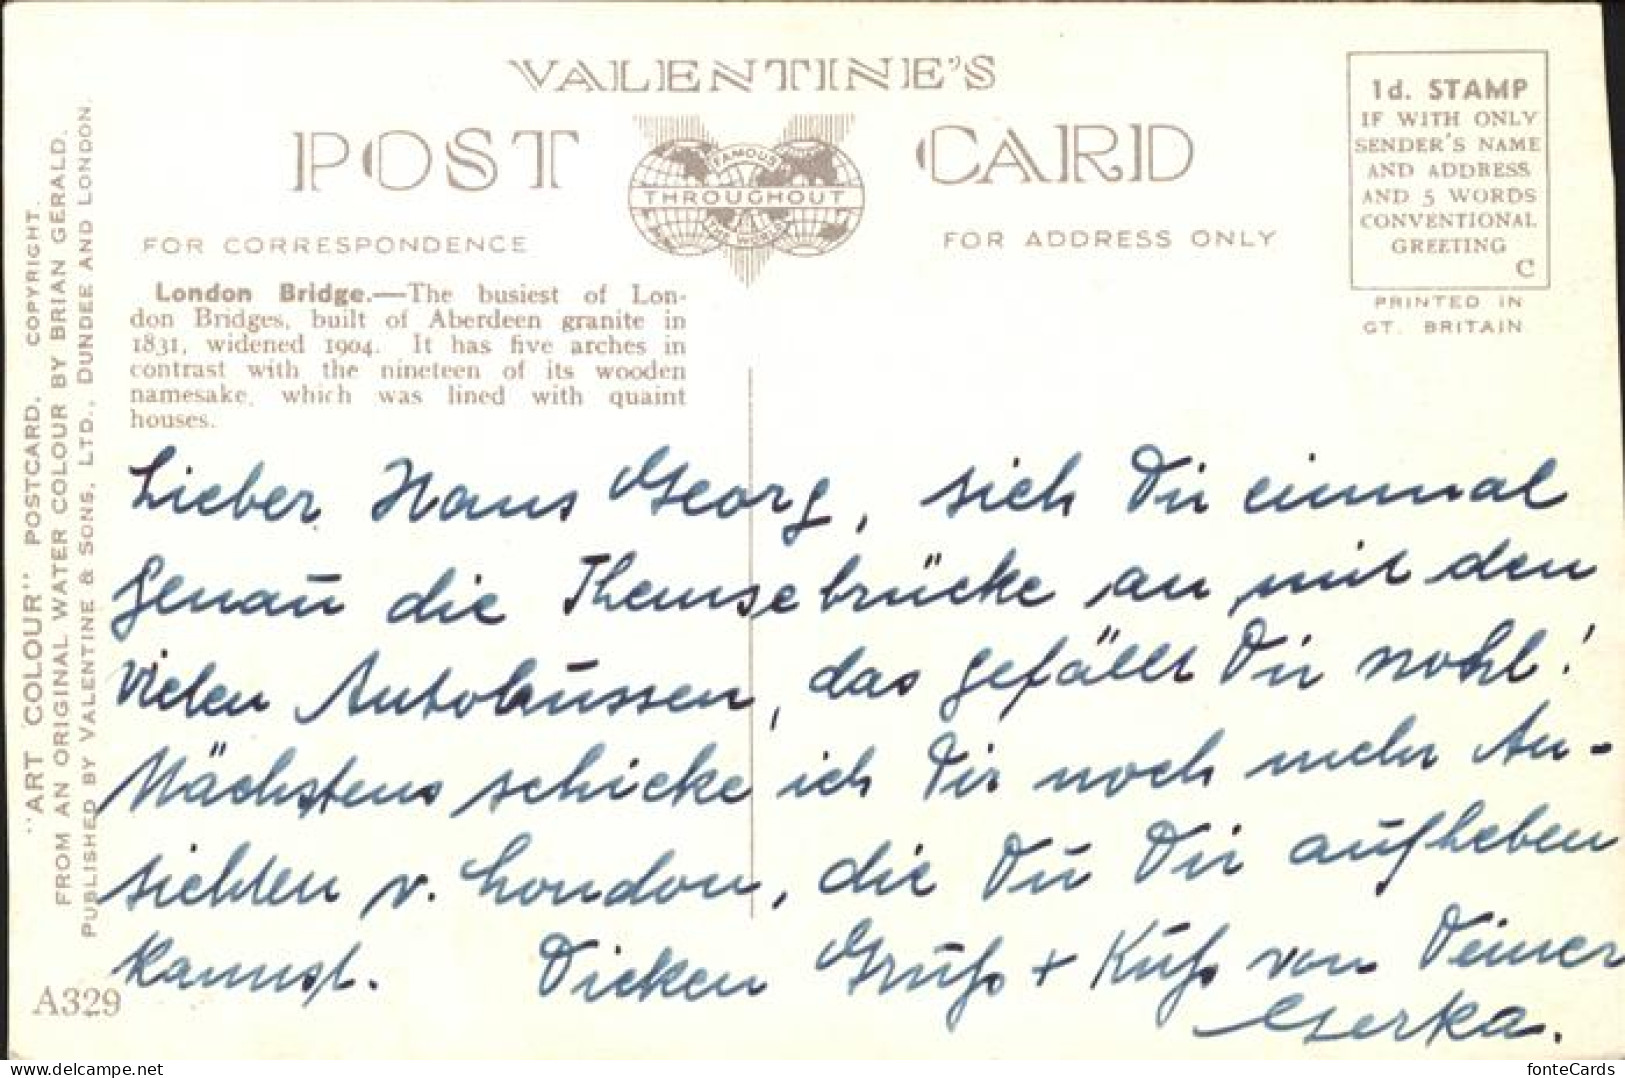 VALENTINE'S
POST CARD
FAMOUS
THROUGHOUT
THE WORLD
FOR CORRESPONDENCE
FOR ADDRESS ONLY
1d. STAMP
IF WITH ONLY
SENDER'S NAME
AND ADDRESS
AND 5 WORDS
CONVENTIONAL
GREETING
C
PRINTED IN
GT. BRITAIN
London Bridge.—The busiest of Lon-
don Bridges, built of Aberdeen granite in
1831, widened 1904. It has five arches in
contrast with the nineteen of its wooden
namesake, which was lined with quaint
houses.
"ART COLOUR" POSTCARD. COPYRIGHT.
FROM AN ORIGINAL WATER COLOUR BY BRIAN GERALD.
PUBLISHED BY VALENTINE & SONS, LTD., DUNDEE AND LONDON.
Lieber Hans Georg, sieh Dir einmal
genau die Themsebrücke an mit den
vielen Autobussen, das gefällt Dir wohl!
Nächstens schicke ich Dir noch mehr An-
sichten v. London, die Du Dir aufheben
kannst. Dicken Gruß + Kuß von Deiner
Gerka.
A329
delcampe.net
fonteCards